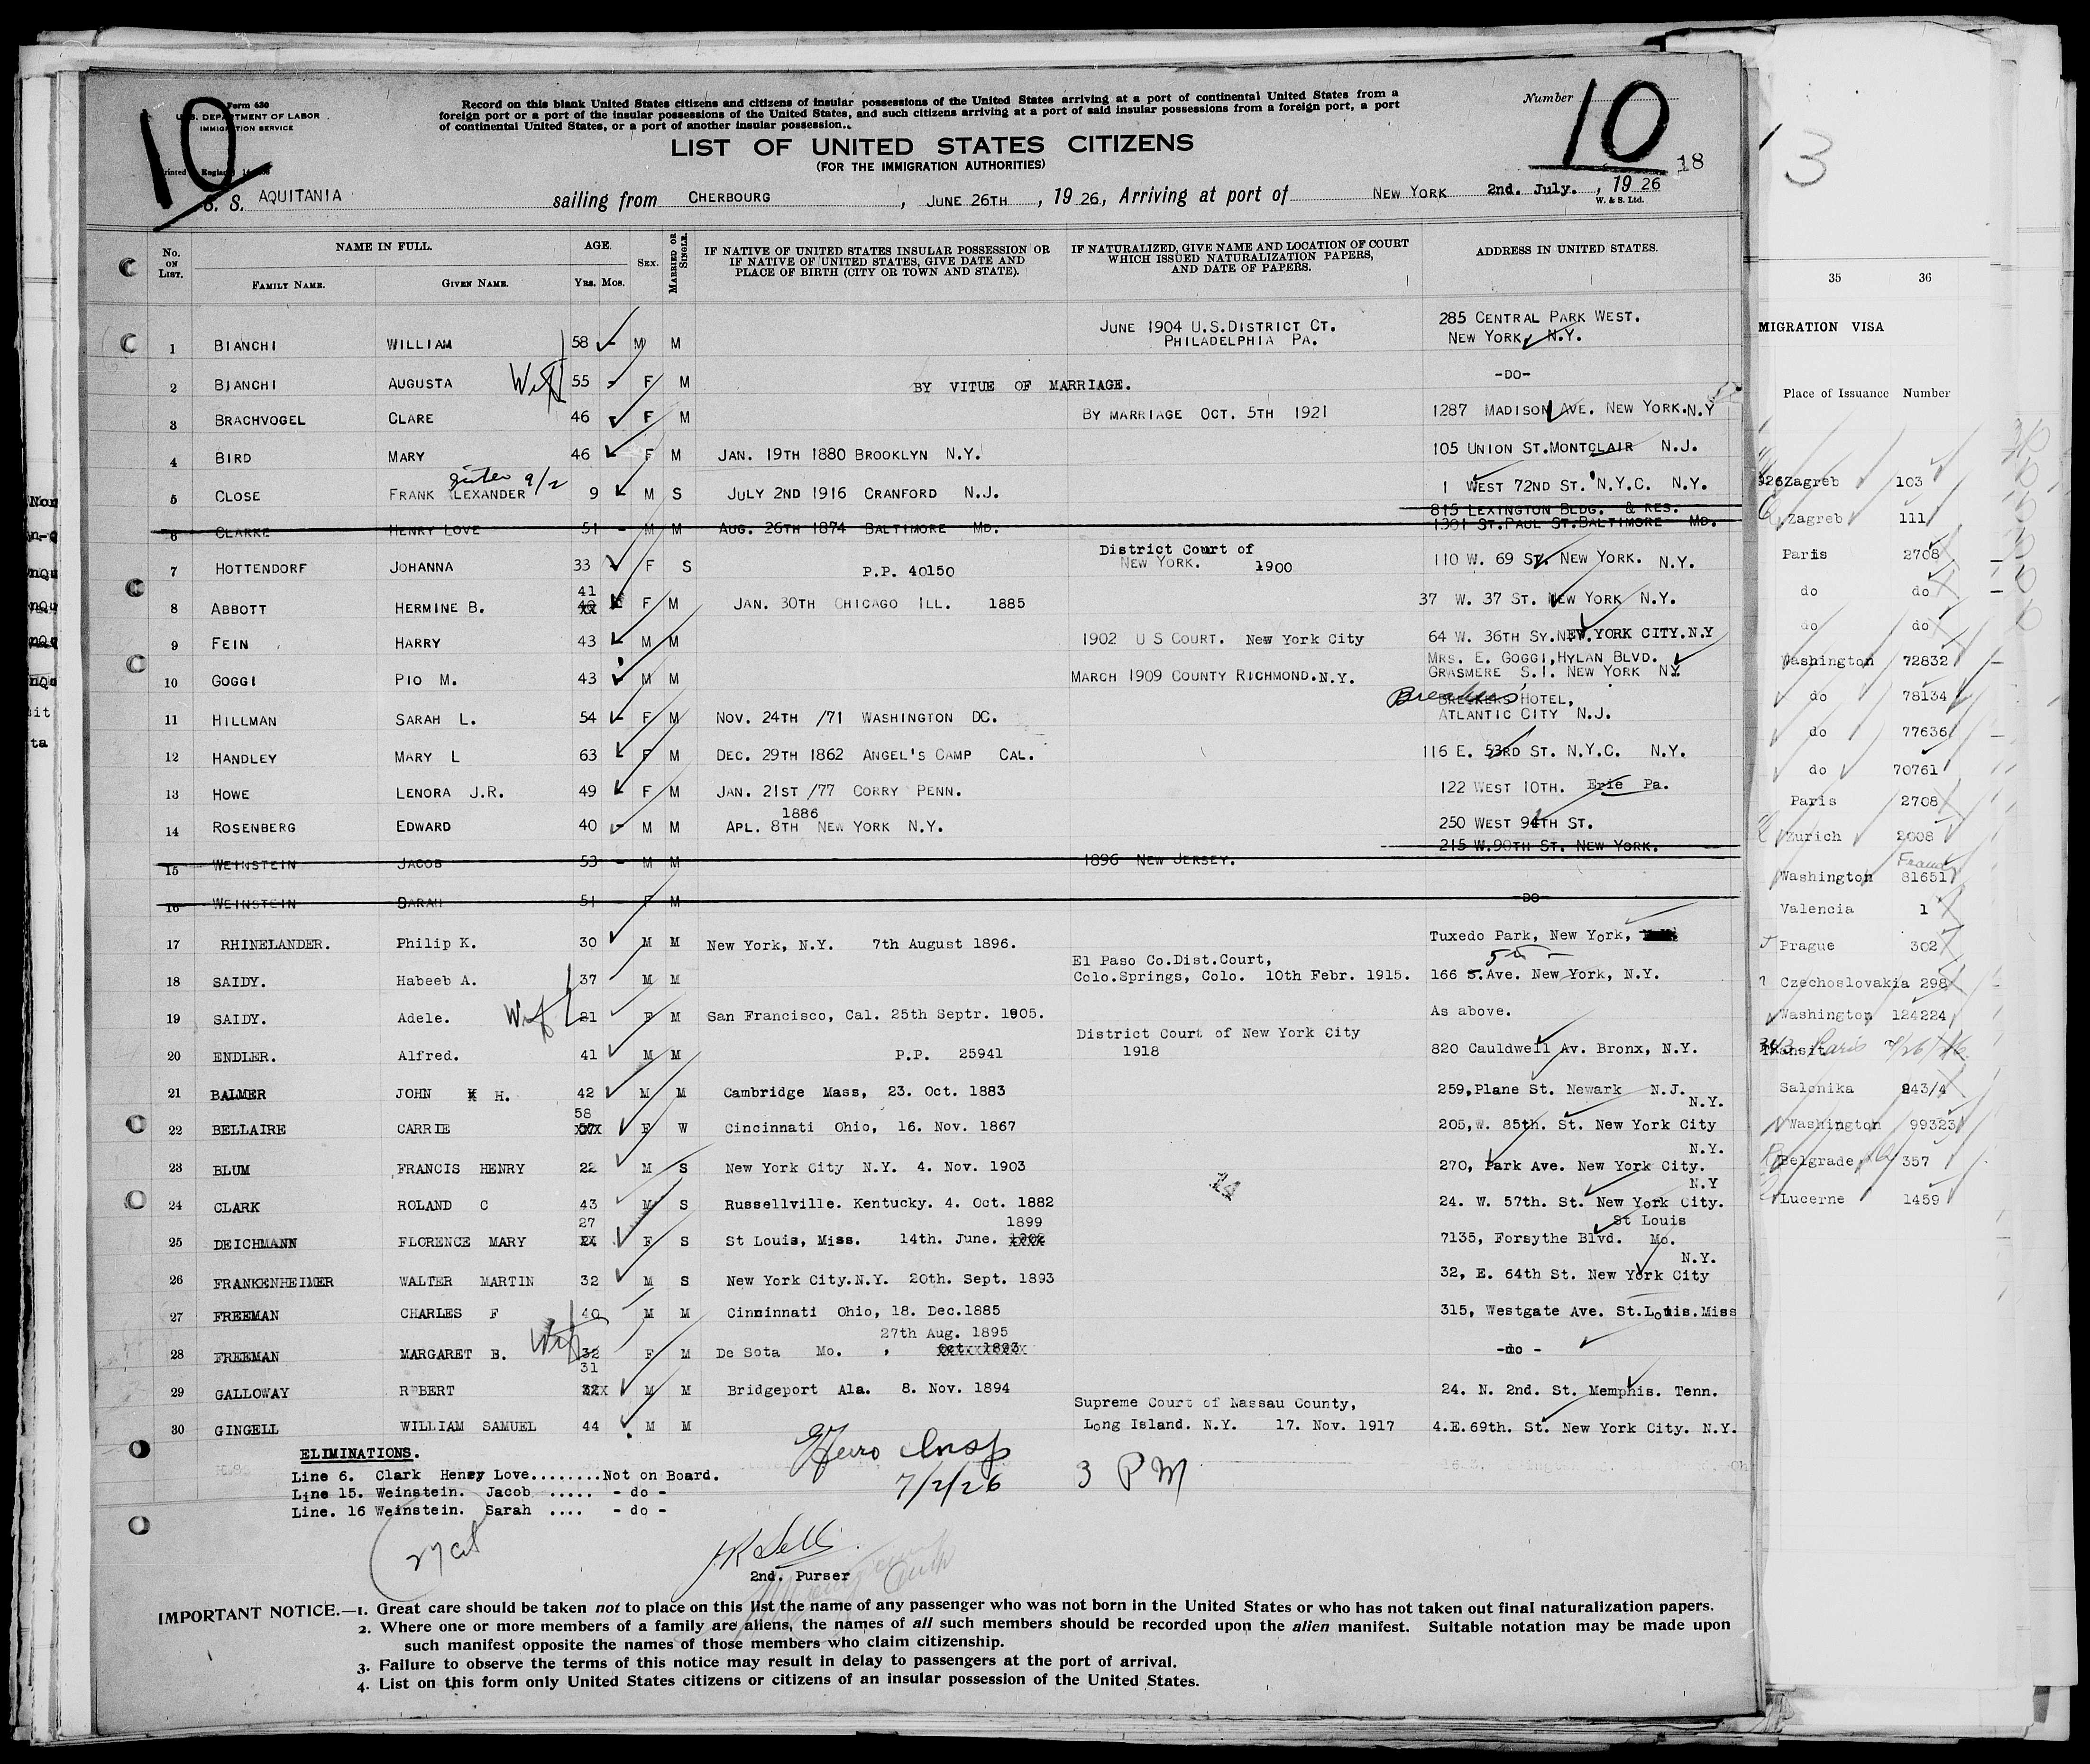 10
Form 630
U.S. DEPARTMENT OF LABOR
IMMIGRATION SERVICE
Record on this blank United States citizens and citizens of insular possessions of the United States arriving at a port of continental United States from a
foreign port or a port of the insular possessions of the United States, and such citizens arriving at a port of said insular possessions from a foreign port, a port
of continental United States, or a port of another insular possession.
Number 10
18
LIST OF UNITED STATES CITIZENS
(FOR THE IMMIGRATION AUTHORITIES)
S. S. AQUITANIA sailing from CHERBOURG, JUNE 26TH, 1926, Arriving at port of NEW YORK 2nd. July., 1926
W. & S. Ltd.
No. ON LIST. NAME IN FULL. FAMILY NAME. GIVEN NAME. AGE. YRS. MOS. SEX. MARRIED OR SINGLE. IF NATIVE OF UNITED STATES INSULAR POSSESSION OR IF NATIVE OF UNITED STATES, GIVE DATE AND PLACE OF BIRTH (CITY OR TOWN AND STATE). IF NATURALIZED, GIVE NAME AND LOCATION OF COURT WHICH ISSUED NATURALIZATION PAPERS, AND DATE OF PAPERS. ADDRESS IN UNITED STATES.
1 BIANCHI WILLIAM 58 - M M JUNE 1904 U.S.DISTRICT CT. PHILADELPHIA PA. 285 CENTRAL PARK WEST. NEW YORK, N.Y.
2 BIANCHI AUGUSTA Wife 55 - F M BY VITUE OF MARRIAGE. -DO-
3 BRACHVOGEL CLARE 46 F M BY MARRIAGE OCT. 5TH 1921 1287 MADISON AVE. NEW YORK.N.Y
4 BIRD MARY 46 F M JAN. 19TH 1880 BROOKLYN N.Y. 105 UNION ST.MONTCLAIR N.J.
5 CLOSE FRANK ALEXANDER 9 M S JULY 2ND 1916 CRANFORD N.J. 1 WEST 72ND ST. N.Y.C. N.Y.
6 CLARKE HENRY LOVE 51 - M M AUG. 26TH 1874 BALTIMORE MD. 815 LEXINGTON BLDG. & RES. 1301 ST.PAUL ST.BALTIMORE MD.
7 HOTTENDORF JOHANNA 33 F S P.P. 40150 District Court of NEW YORK. 1900 110 W. 69 ST. NEW YORK. N.Y.
8 ABBOTT HERMINE B. 41 F M JAN. 30TH CHICAGO ILL. 1885 37 W. 37 ST. NEW YORK N.Y.
9 FEIN HARRY 43 M M 1902 U S COURT. NEW YORK CITY 64 W. 36TH SY.NEW.YORK CITY.N.Y
10 GOGGI PIO M. 43 M M MARCH 1909 COUNTY RICHMOND.N.Y. MRS. E. GOGGI,HYLAN BLVD. GRASMERE S.I. NEW YORK NY
11 HILLMAN SARAH L. 54 - F M NOV. 24TH /71 WASHINGTON DC. Breakers BRECKERS HOTEL, ATLANTIC CITY N.J.
12 HANDLEY MARY L 63 F M DEC. 29TH 1862 ANGEL'S CAMP CAL. 116 E. 53RD ST. N.Y.C. N.Y.
13 HOWE LENORA J.R. 49 F M JAN. 21ST /77 CORRY PENN. 122 WEST 10TH. Erie Pa.
14 ROSENBERG EDWARD 40 - M M APL. 8TH 1886 NEW YORK N.Y. 250 WEST 94TH ST.
15 WEINSTEIN JACOB 53 - M M 1896 NEW JERSEY. 215 W.90TH ST. NEW YORK.
16 WEINSTEIN SARAH 51 - F M -DO-
17 RHINELANDER. Philip K. 30 M M New York, N.Y. 7th August 1896. Tuxedo Park, New York,
18 SAIDY. Habeeb A. 37 M M El Paso Co.Dist.Court, Colo.Springs, Colo. 10th Febr. 1915. 166 5.Ave. New York, N.Y.
19 SAIDY. Adele. Wife 21 F M San Francisco, Cal. 25th Septr. 1905. As above.
20 ENDLER. Alfred. 41 M M P.P. 25941 District Court of New York City 1918 820 Cauldwell Av. Bronx, N.Y.
21 BALMER JOHN H. 42 M M Cambridge Mass, 23. Oct. 1883 259,Plane St. Newark N.J.
22 BELLAIRE CARRIE 58 F W Cincinnati Ohio, 16. Nov. 1867 205,W. 85th. St. New York City N.Y.
23 BLUM FRANCIS HENRY 22 M S New York City N.Y. 4. Nov. 1903 270, Park Ave. New York City. N.Y.
24 CLARK ROLAND C 43 M S Russellville. Kentucky. 4. Oct. 1882 14 24. W. 57th. St. New York City. N.Y
25 DEICHMANN FLORENCE MARY 27 F S St Louis, Miss. 14th. June. 1899 7135, Forsythe Blvd. St Louis Mo.
26 FRANKENHEIMER WALTER MARTIN 32 M S New York City.N.Y. 20th. Sept. 1893 32, E. 64th St. New York City N.Y.
27 FREEMAN CHARLES F 40 M M Cincinnati Ohio, 18. Dec.1885 315, Westgate Ave. St.Louis.Miss
28 FREEMAN MARGARET B. Wife 32 F M De Sota Mo. , 27th Aug. 1895 Oct. 1893 -do -
29 GALLOWAY ROBERT 31 M M Bridgeport Ala. 8. Nov. 1894 24. N. 2nd. St. Memphis. Tenn.
30 GINGELL WILLIAM SAMUEL 44 M M Supreme Court of Nassau County, Long Island. N.Y. 17. Nov. 1917 4.E.69th. St. New York City. N.Y.
ELIMINATIONS.
Line 6. Clark Henry Love........Not on Board.
Line 15. Weinstein. Jacob ..... - do -
Line. 16 Weinstein. Sarah .... - do -
Insp
7/2/26 3 PM
27 Cit
2nd. Purser
IMPORTANT NOTICE.—1. Great care should be taken not to place on this list the name of any passenger who was not born in the United States or who has not taken out final naturalization papers.
2. Where one or more members of a family are aliens, the names of all such members should be recorded upon the alien manifest. Suitable notation may be made upon
such manifest opposite the names of those members who claim citizenship.
3. Failure to observe the terms of this notice may result in delay to passengers at the port of arrival.
4. List on this form only United States citizens or citizens of an insular possession of the United States.
3
35 36
MIGRATION VISA
Place of Issuance Number
Zagreb 103
Zagreb 111
Paris 2708
do do
do do
Washington 72832
do 78134
do 77636
do 70761
Paris 2708
Zurich 2008
Washington 81651
Valencia 1
Prague 302
Czechoslovakia 298
Washington 124224
Transit Paris
Salonika 243/4
Washington 99323
Belgrade 357
Lucerne 1459